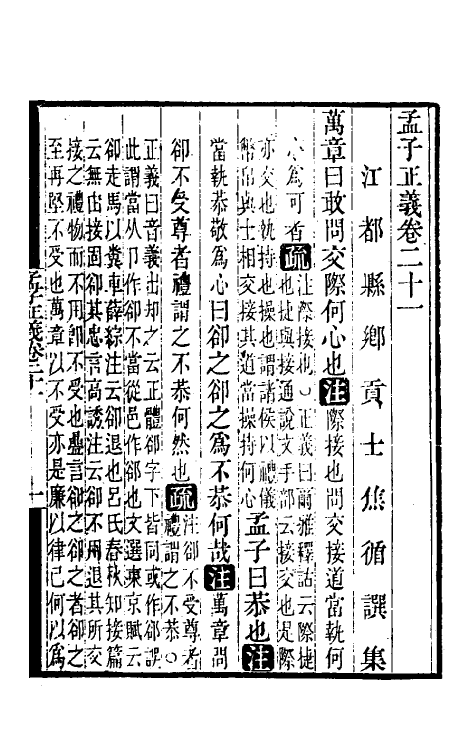 孟子正義卷二十一
江都縣鄉貢士焦循譔集
萬章曰敢問交際何心也注際接也問交接道當執何
心為可者疏注際接也○正義曰爾雅釋詁云際捷
也捷與接通說文手部云接交也是際
亦交也執持也操也謂諸侯以禮儀
幣帛與士相交接其道當操持何心孟子曰恭也注
當執恭敬為心曰卻之卻之為不恭何哉注萬章問
卻不受尊者禮謂之不恭何然也疏注卻不受尊者
禮謂之不恭○
正義曰音義出却之云正體卻字下皆同或作郤誤
此謂當从卩作卻不當從邑作郤也文選東京賦云
卻走馬以糞車薛綜注云卻退也呂氏春秋知接篇
云無由接固卻其忠言高誘注云卻不用退其所交
接之禮物而不用卽不受也疊言卻之卻之者卻之
至再堅不受也萬章以不受亦是廉以律己何以為
孟子正義卷二十一 一